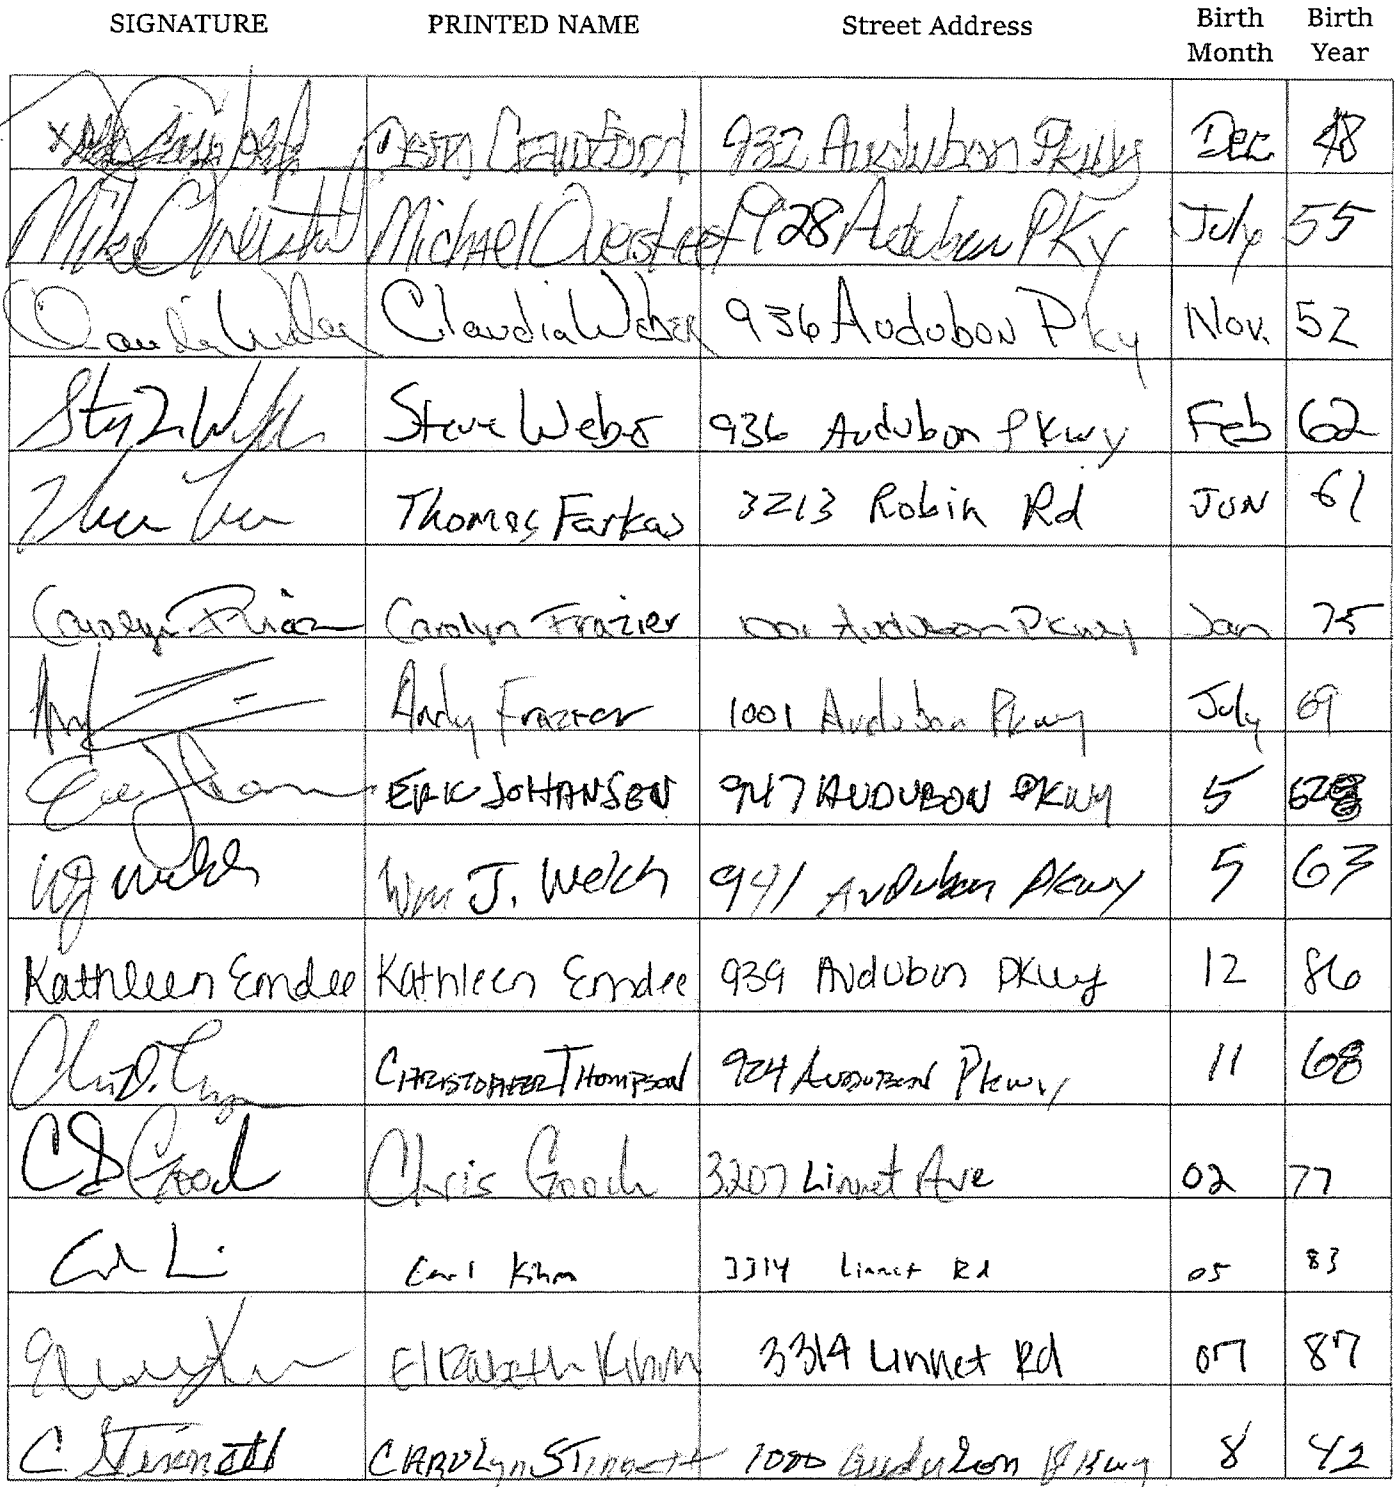 SIGNATURE PRINTED NAME Street Address Birth Month Birth Year
Crawford 932 Audubon Pkwy Dec 48
Mike Overstreet Michael Overstreet 928 Audubon PKy July 55
Claudia Weber Claudia Weber 936 Audubon Pky Nov. 52
Steve Weber 936 Audubon Pkwy Feb 62
Thomas Farkas 3213 Robin Rd JUN 61
Carolyn Frazier Carolyn Frazier 1001 Audubon Pkwy Jan 75
Andy Frazier 1001 Audubon Pkwy July 69
ERIC JOHANSEN 947 AUDUBON PKWY 5 62
WJ Welch Wm J. Welch 941 Audubon Pkwy 5 63
Kathleen Emdee Kathleen Emdee 939 Audubon Pkwy 12 86
CHRISTOPHER THOMPSON 924 AUDUBON Pkwy 11 68
Chris Gooch 3207 Linnet Ave 02 77
Carl Kihm 3314 Linnet Rd 05 83
Elizabeth Kihm 3314 Linnet Rd 07 87
C Stinnett CAROLyn Stinnett 1000 Audubon Pkwy 8 42